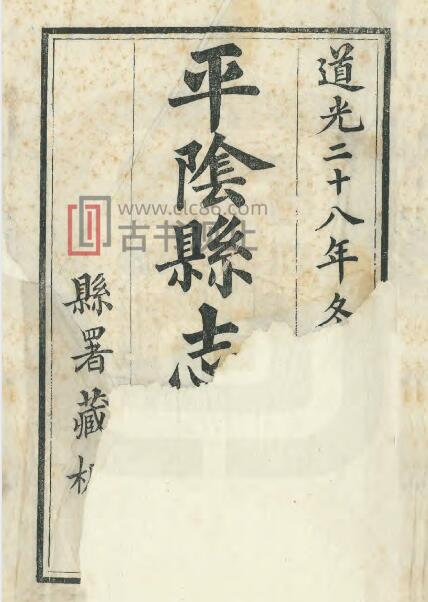 道光二十八年冬
平陰縣志
縣署藏板
www.clc86.com
古书